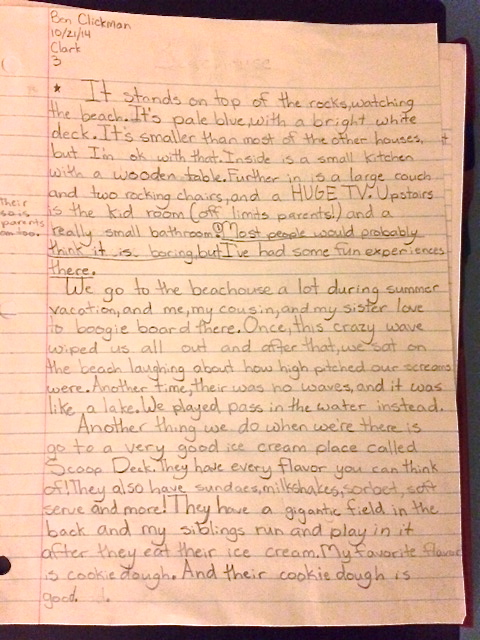 Ben Clickman
10/21/14
Clark
3
* It stands on top of the rocks, watching
the beach. It's pale blue, with a bright white
deck. It's smaller than most of the other houses,
but I'm ok with that. Inside is a small kitchen
with a wooden table. Further in is a large couch
and two rocking chairs, and a HUGE TV. Upstairs
is the kid room (off limits parents!) and a
really small bathroom. Most people would probably
think it is boring, but I've had some fun experiences
there.
Their
parents
too.
We go to the beachouse a lot during summer
vacation, and me, my cousin, and my sister love
to boogie board there. Once, this crazy wave
wiped us all out and after that, we sat on
the beach laughing about how high pitched our screams
were. Another time, their was no waves, and it was
like a lake. We played pass in the water instead.
Another thing we do when we're there is
go to a very good ice cream place called
Scoop Deck. They have every flavor you can think
of! They also have sundaes, milkshakes, sorbet, soft
serve and more! They have a gigantic field in the
back and my siblings run and play in it
after they eat their ice cream. My favorite flavor
is cookie dough. And their cookie dough is
good.